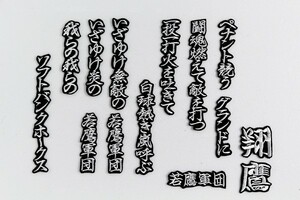 ペナント競う グランドに
闘魂燃えて敵を打つ
投打火を吐きて
白球熱き風呼ぶ
いざゆけ無敵の 若鷹軍団
いざゆけ炎の 若鷹軍団
我らの我らの
ソフトバンクホークス
翔鷹
若鷹軍団